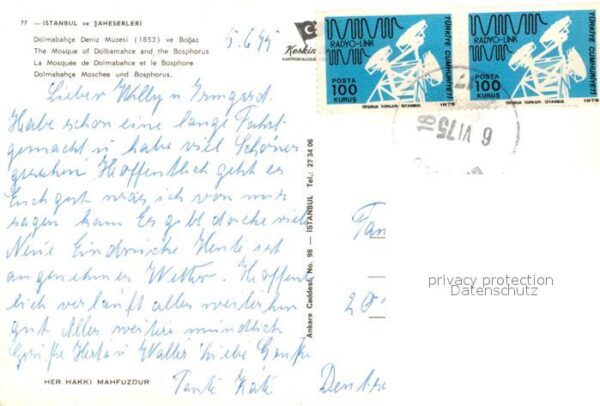 77 — İSTANBUL ve ŞAHESERLERİ
Dolmabahçe Deniz Müzesi (1853) ve Boğaz
The Mosque of Dolbamahce and the Bosphorus
La Mosquée de Dolmabahce et le Bosphore
Dolmabahçe Moschee und Bosphorus.
5.6.75
Keskin
KARTPOSTALCILIK
Lieber Willy u Irmgard.
Habe schon eine lange Fahrt
gemacht u habe viel Schönes
gesehen. Hoffentlich geht es
Euch gut was ich von mir
sagen kann Es gibt doch viele
Neue Eindrücke Heute ist
angenehmes Wetter. Hoffent
lich verläuft alles weiterhin
gut Alles weitere mündlich
Grüße Herta u Walter Liebe Grüße
Tante Käte
HER HAKKI MAHFUZDUR
Ankara Caddesi, No. 98 — İSTANBUL Tel.: 27 34 06
RADYO-LINK
POSTA
100
KURUŞ
TÜRKİYE CUMHURİYETİ
TİFDRUK TOPKAPI, İSTANBUL
1975
RADYO-LINK
POSTA
100
KURUŞ
TÜRKİYE CUMHURİYETİ
TİFDRUK TOPKAPI, İSTANBUL
1975
6 VI 75
18
privacy protection
Datenschutz